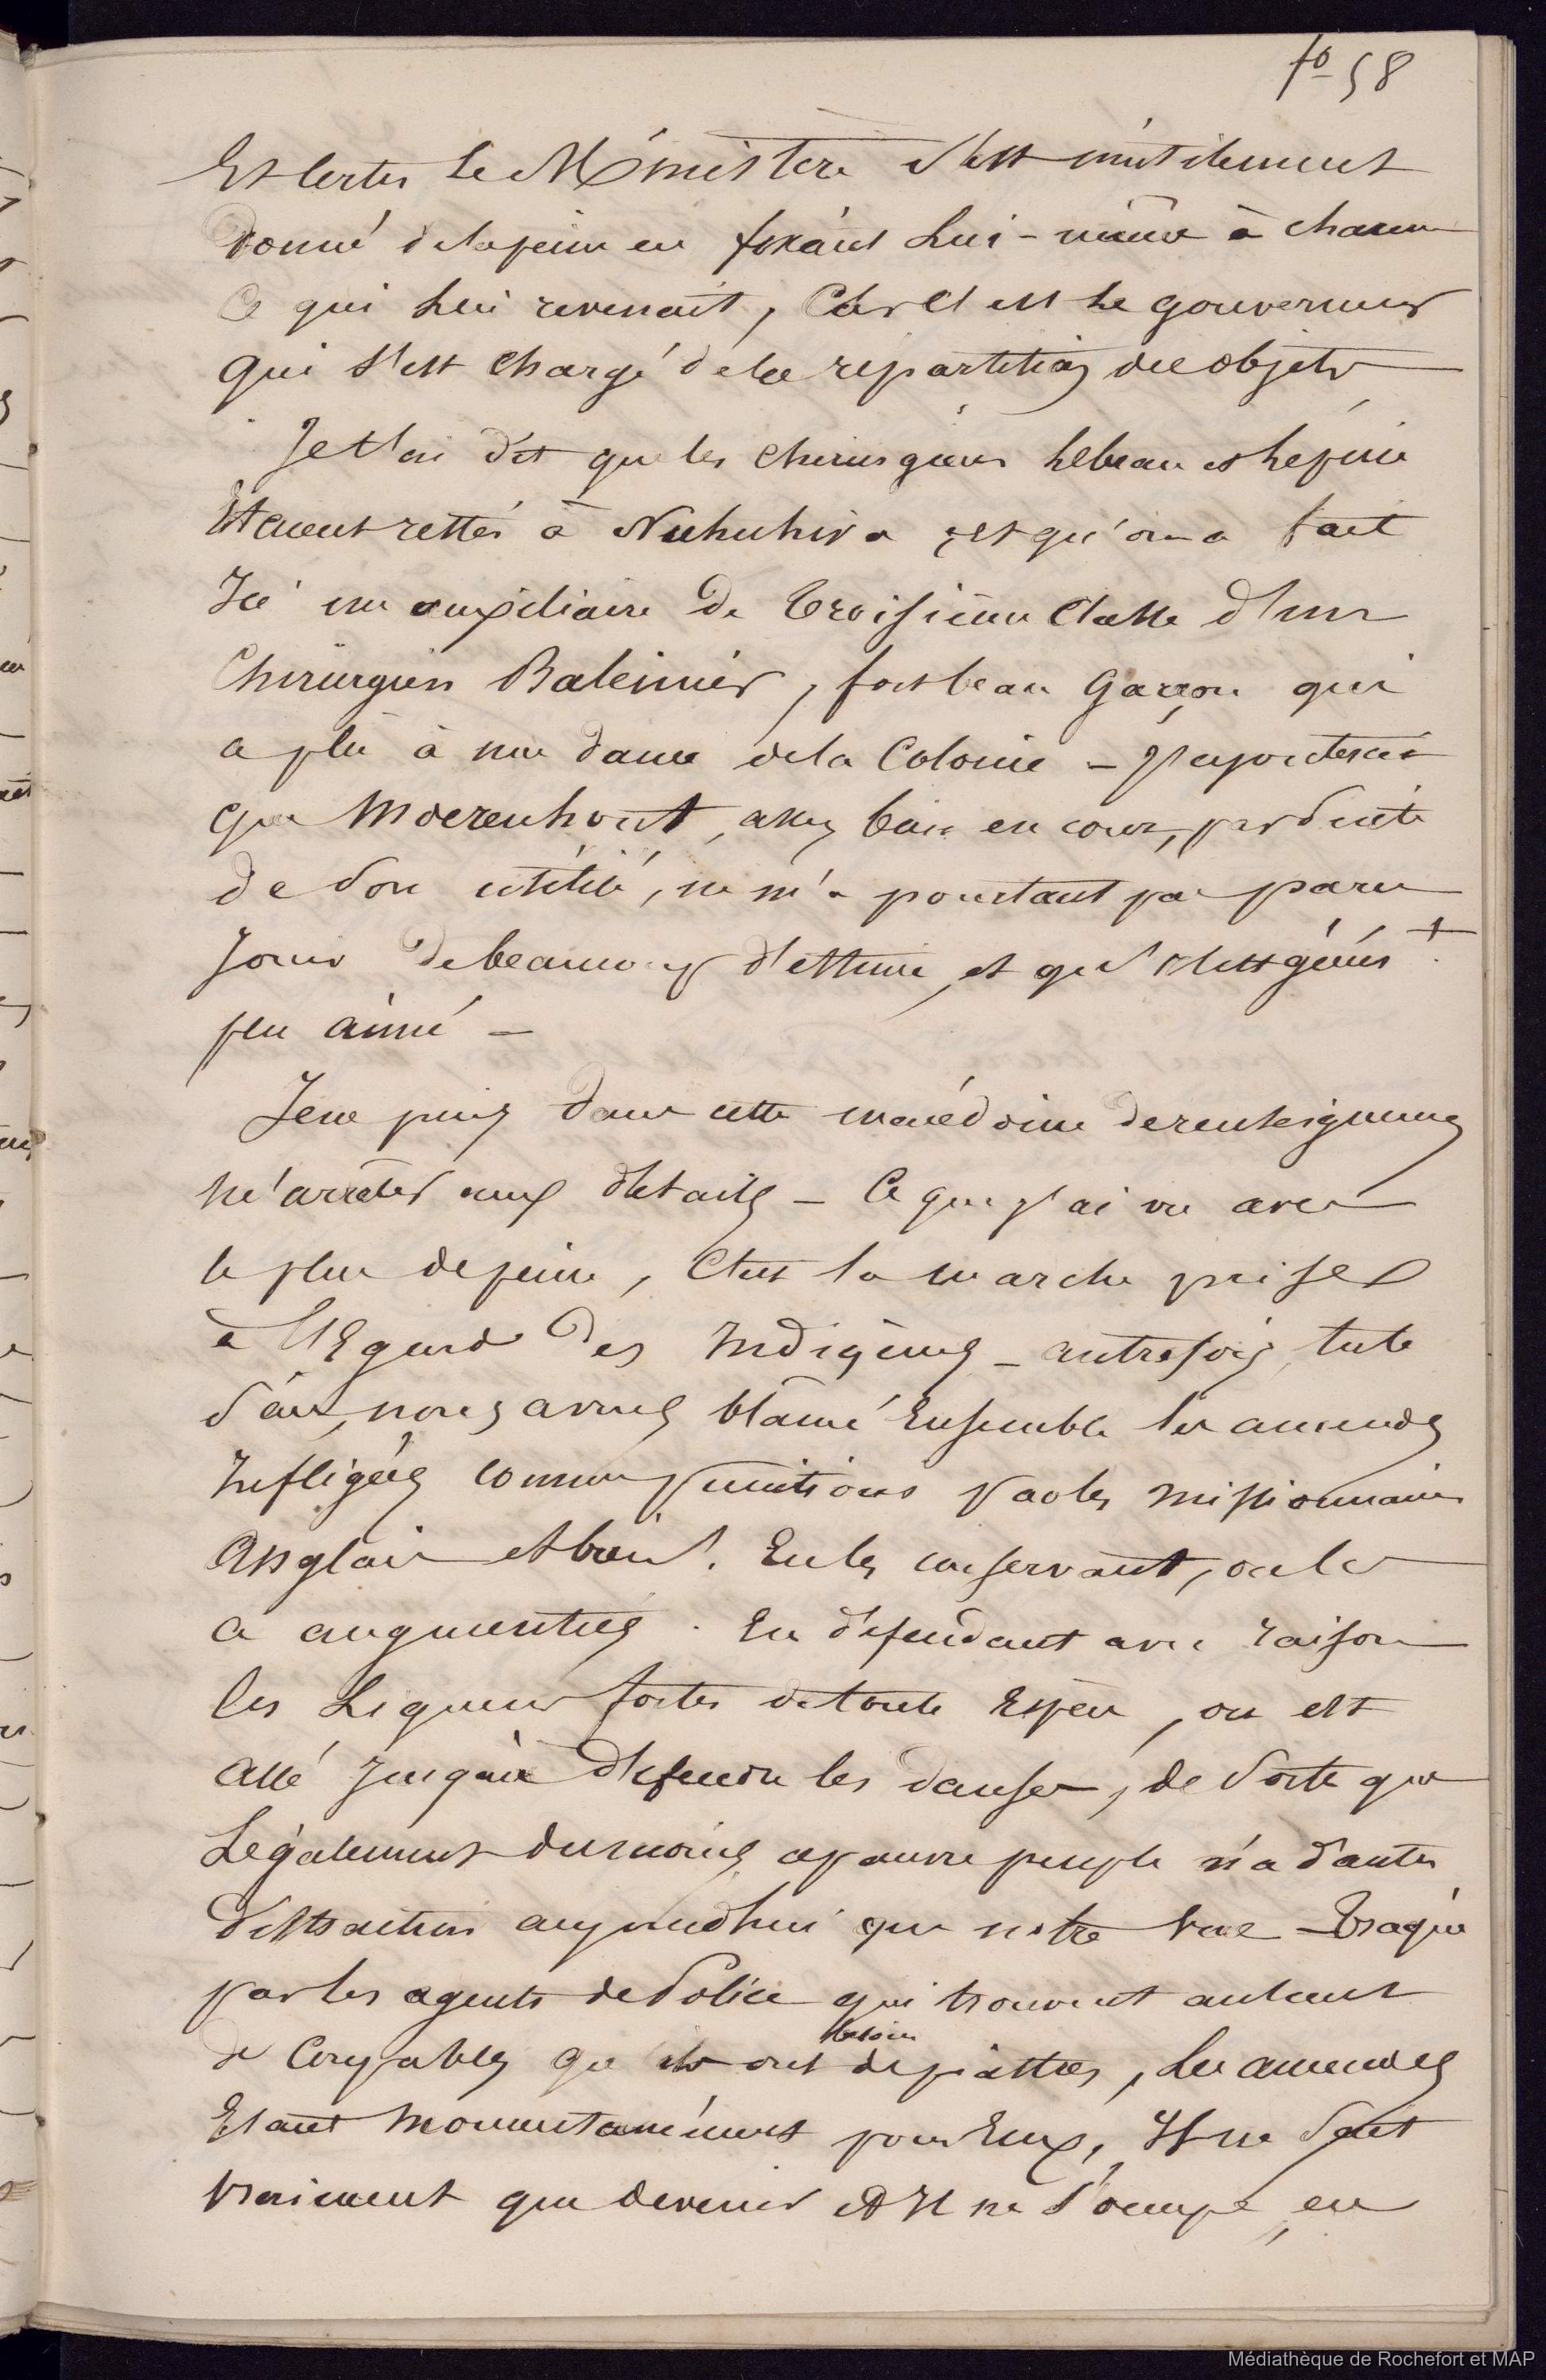 fo 58
Et certes le Ministère s'est inutilement
donné de la peine en fixant lui-même à chacun
ce qui lui revenait, Car c'est le gouverneur
qui s'est chargé de la répartition des objets
Je t'ai dit que les chirurgiens lebeau et
étaient restés à Nuhuhiva, et qu'on a fait
Ici un auxiliaire de troisième Classe d'un
Chirurgien Baleinier, fort beau garçon qui
a plu à une dame de la Colonie - J'ajouterai
que Moerenhout, assez bien en cour, par suite
de son utilité, ne m'a pourtant pas paru
Jouir de beaucoup d'estime, et qu'il est génér.t
peu aimé -
Je ne puis dans cette macédoine de renseignemens
m'arrêter aux détails - Ce que j'ai vu avec
le plus de peine, C'est la marche prise
à l'Egard des Indigènes - autrefois, tu le
sais, nous avons blâmé Ensemble les amendes
Infligées comme punitions par les missionnaires
Anglais et bien! En les conservant, on les
a augmentées. En défendant avec raison
les liqueurs fortes de toute Espèce, on est
allé jusqu'à défendre les danses, de sorte que
Légalement du moins ce pauvre peuple n'a d'autre
distraction aujourd'hui que notre vue - Traqué
par les agents de Police qui trouvent autant
de Coupables qu'ils ont besoin de piastres, les amendes
Etant momentanément pour Eux, Il ne sait
vraiment que devenir et Il ne s'occupe en
Médiathèque de Rochefort et MAP